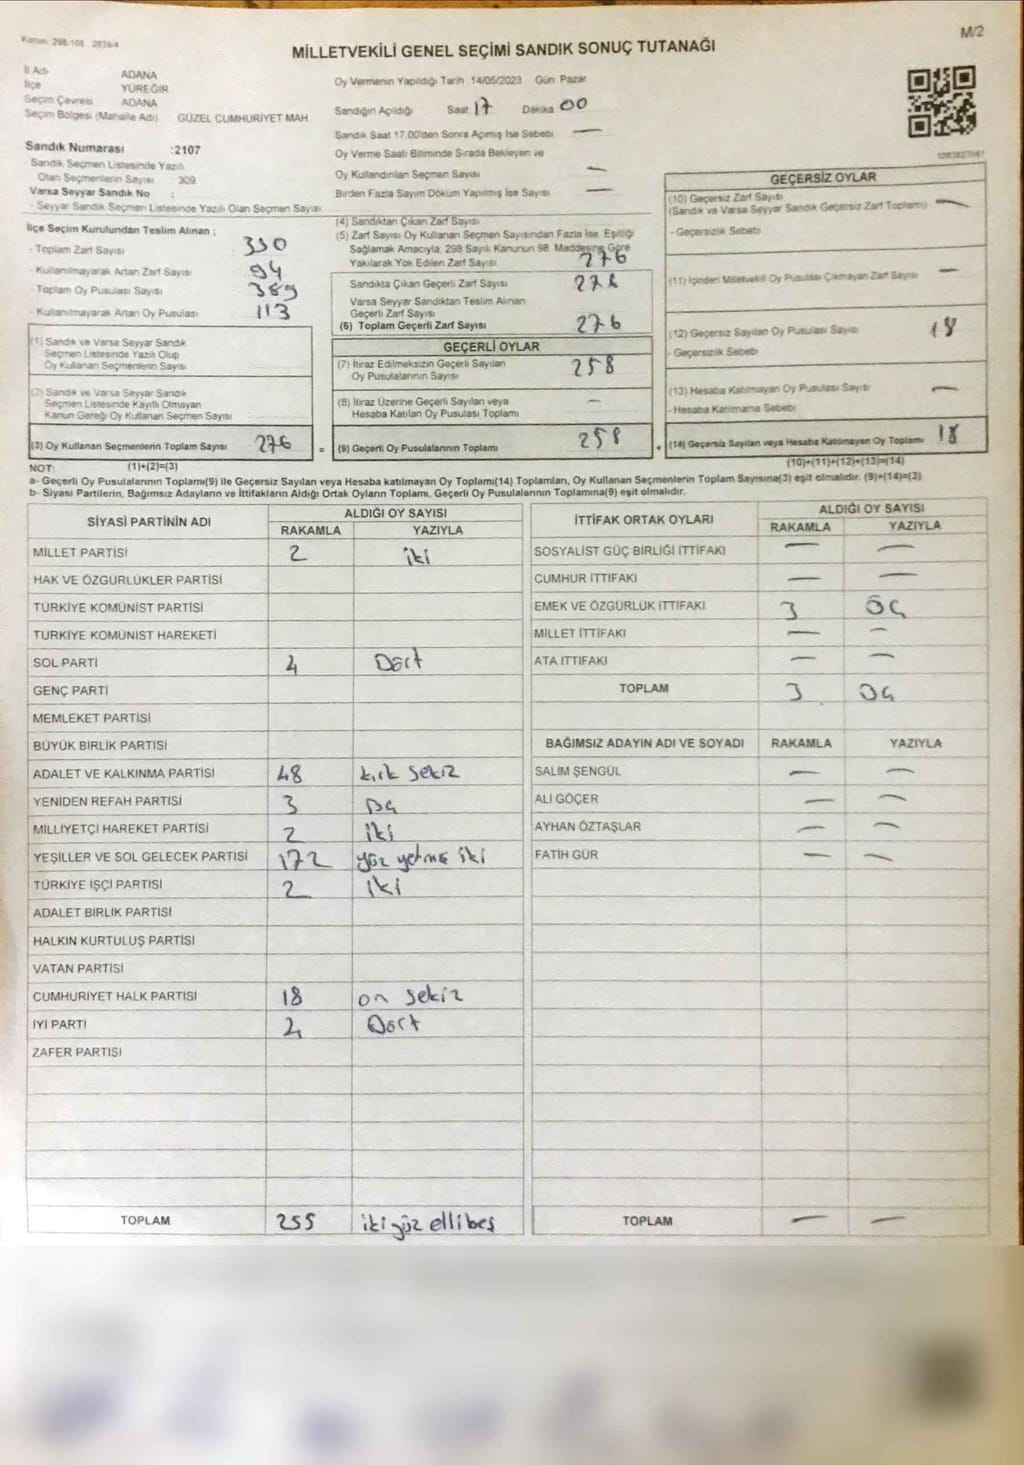 Kanun: 298/105 2839/4
M/2
MİLLETVEKİLİ GENEL SEÇİMİ SANDIK SONUÇ TUTANAĞI
İl Adı ADANA
İlçe YÜREĞİR
Seçim Çevresi ADANA
Seçim Bölgesi (Mahalle Adı) GÜZEL CUMHURİYET MAH
Sandık Numarası :2107
- Sandık Seçmen Listesinde Yazılı
Olan Seçmenlerin Sayısı : 309
Varsa Seyyar Sandık No :
- Seyyar Sandık Seçmen Listesinde Yazılı Olan Seçmen Sayısı:
Oy Vermenin Yapıldığı Tarih 14/05/2023 Gün Pazar
Sandığın Açıldığı Saat 17 Dakika 00
Sandık Saat 17.00'den Sonra Açımış İse Sebebi —
Oy Verme Saati Bitiminde Sırada Bekleyen ve
Oy Kullandırılan Seçmen Sayısı —
Birden Fazla Sayım Döküm Yapılmış İse Sayısı —
İlçe Seçim Kurulundan Teslim Alınan ;
- Toplam Zarf Sayısı 330
- Kullanılmayarak Artan Zarf Sayısı 94
- Toplam Oy Pusulası Sayısı 389
- Kullanılmayarak Artan Oy Pusulası 113
(1) Sandık ve Varsa Seyyar Sandık
Seçmen Listesinde Yazılı Olup
Oy Kullanan Seçmenlerin Sayısı
(2) Sandık ve Varsa Seyyar Sandık
Seçmen Listesinde Kayıtlı Olmayan
Kanun Gereği Oy Kullanan Seçmen Sayısı
(3) Oy Kullanan Seçmenlerin Toplam Sayısı 276 =
(4) Sandıktan Çıkan Zarf Sayısı
(5) Zarf Sayısı Oy Kullanan Seçmen Sayısından Fazla İse, Eşitliği
Sağlamak Amacıyla, 298 Sayılı Kanunun 98. Maddesine Göre
Yakılarak Yok Edilen Zarf Sayısı 276
Sandıkta Çıkan Geçerli Zarf Sayısı 276
Varsa Seyyar Sandıktan Teslim Alınan
Geçerli Zarf Sayısı
(6) Toplam Geçerli Zarf Sayısı 276
GEÇERLİ OYLAR
(7) İtiraz Edilmeksizin Geçerli Sayılan
Oy Pusulalarının Sayısı 258
(8) İtiraz Üzerine Geçerli Sayılan veya
Hesaba Katılan Oy Pusulası Toplamı —
(9) Geçerli Oy Pusulalarının Toplamı 258 +
GEÇERSİZ OYLAR
(10) Geçersiz Zarf Sayısı
(Sandık ve Varsa Seyyar Sandık Geçersiz Zarf Toplamı) —
- Geçersizlik Sebebi
(11) İçinden Milletvekili Oy Pusulası Çıkmayan Zarf Sayısı —
(12) Geçersiz Sayılan Oy Pusulası Sayısı 18
- Geçersizlik Sebebi
(13) Hesaba Katılmayan Oy Pusulası Sayısı —
- Hesaba Katılmama Sebebi
(14) Geçersiz Sayılan veya Hesaba Katılmayan Oy Toplamı 18
NOT: (1)+(2)=(3) (10)+(11)+(12)+(13)=(14)
a- Geçerli Oy Pusulalarının Toplamı(9) ile Geçersiz Sayılan veya Hesaba katılmayan Oy Toplamı(14) Toplamları, Oy Kullanan Seçmenlerin Toplam Sayısına(3) eşit olmalıdır. (9)+(14)=(3)
b- Siyasi Partilerin, Bağımsız Adayların ve İttifakların Aldığı Ortak Oyların Toplamı, Geçerli Oy Pusulalarının Toplamına(9) eşit olmalıdır.
SİYASİ PARTİNİN ADI ALDIĞI OY SAYISI
RAKAMLA YAZIYLA
MİLLET PARTİSİ 2 iki
HAK VE ÖZGÜRLÜKLER PARTİSİ
TÜRKİYE KOMÜNİST PARTİSİ
TÜRKİYE KOMÜNİST HAREKETİ
SOL PARTİ 4 Dört
GENÇ PARTİ
MEMLEKET PARTİSİ
BÜYÜK BİRLİK PARTİSİ
ADALET VE KALKINMA PARTİSİ 48 kırk sekiz
YENİDEN REFAH PARTİSİ 3 üç
MİLLİYETÇİ HAREKET PARTİSİ 2 iki
YEŞİLLER VE SOL GELECEK PARTİSİ 172 yüz yetmiş iki
TÜRKİYE İŞÇİ PARTİSİ 2 iki
ADALET BİRLİK PARTİSİ
HALKIN KURTULUŞ PARTİSİ
VATAN PARTİSİ
CUMHURİYET HALK PARTİSİ 18 on sekiz
İYİ PARTİ 4 Dört
ZAFER PARTİSİ
TOPLAM 255 iki yüz elli beş
İTTİFAK ORTAK OYLARI ALDIĞI OY SAYISI
RAKAMLA YAZIYLA
SOSYALİST GÜÇ BİRLİĞİ İTTİFAKI — —
CUMHUR İTTİFAKI — —
EMEK VE ÖZGÜRLÜK İTTİFAKI 3 üç
MİLLET İTTİFAKI — —
ATA İTTİFAKI — —
TOPLAM 3 üç
BAĞIMSIZ ADAYIN ADI VE SOYADI RAKAMLA YAZIYLA
SALİM ŞENGÜL — —
ALİ GÖÇER — —
AYHAN ÖZTAŞLAR — —
FATİH GÜR — —
TOPLAM — —